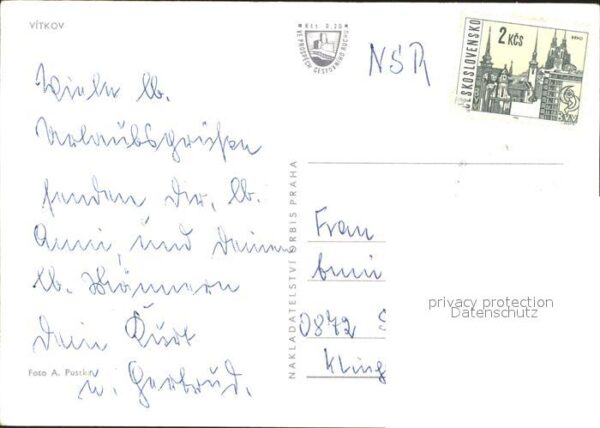 VÍTKOV
Kčs 0.20
VE PROSPĚCH CESTOVNÍHO RUCHU
NSR
ČESKOSLOVENSKO
2 KČS
BRNO
Viele lb.
Urlaubsgrüße
senden Dir, lb.
Anni, und Deinen
lb. Männern
Dein Kurt
u. Gertrud.
Foto A. Pustka
NAKLADATELSTVÍ ORBIS PRAHA
Frau
Anni
0872 S
Kling
privacy protection
Datenschutz